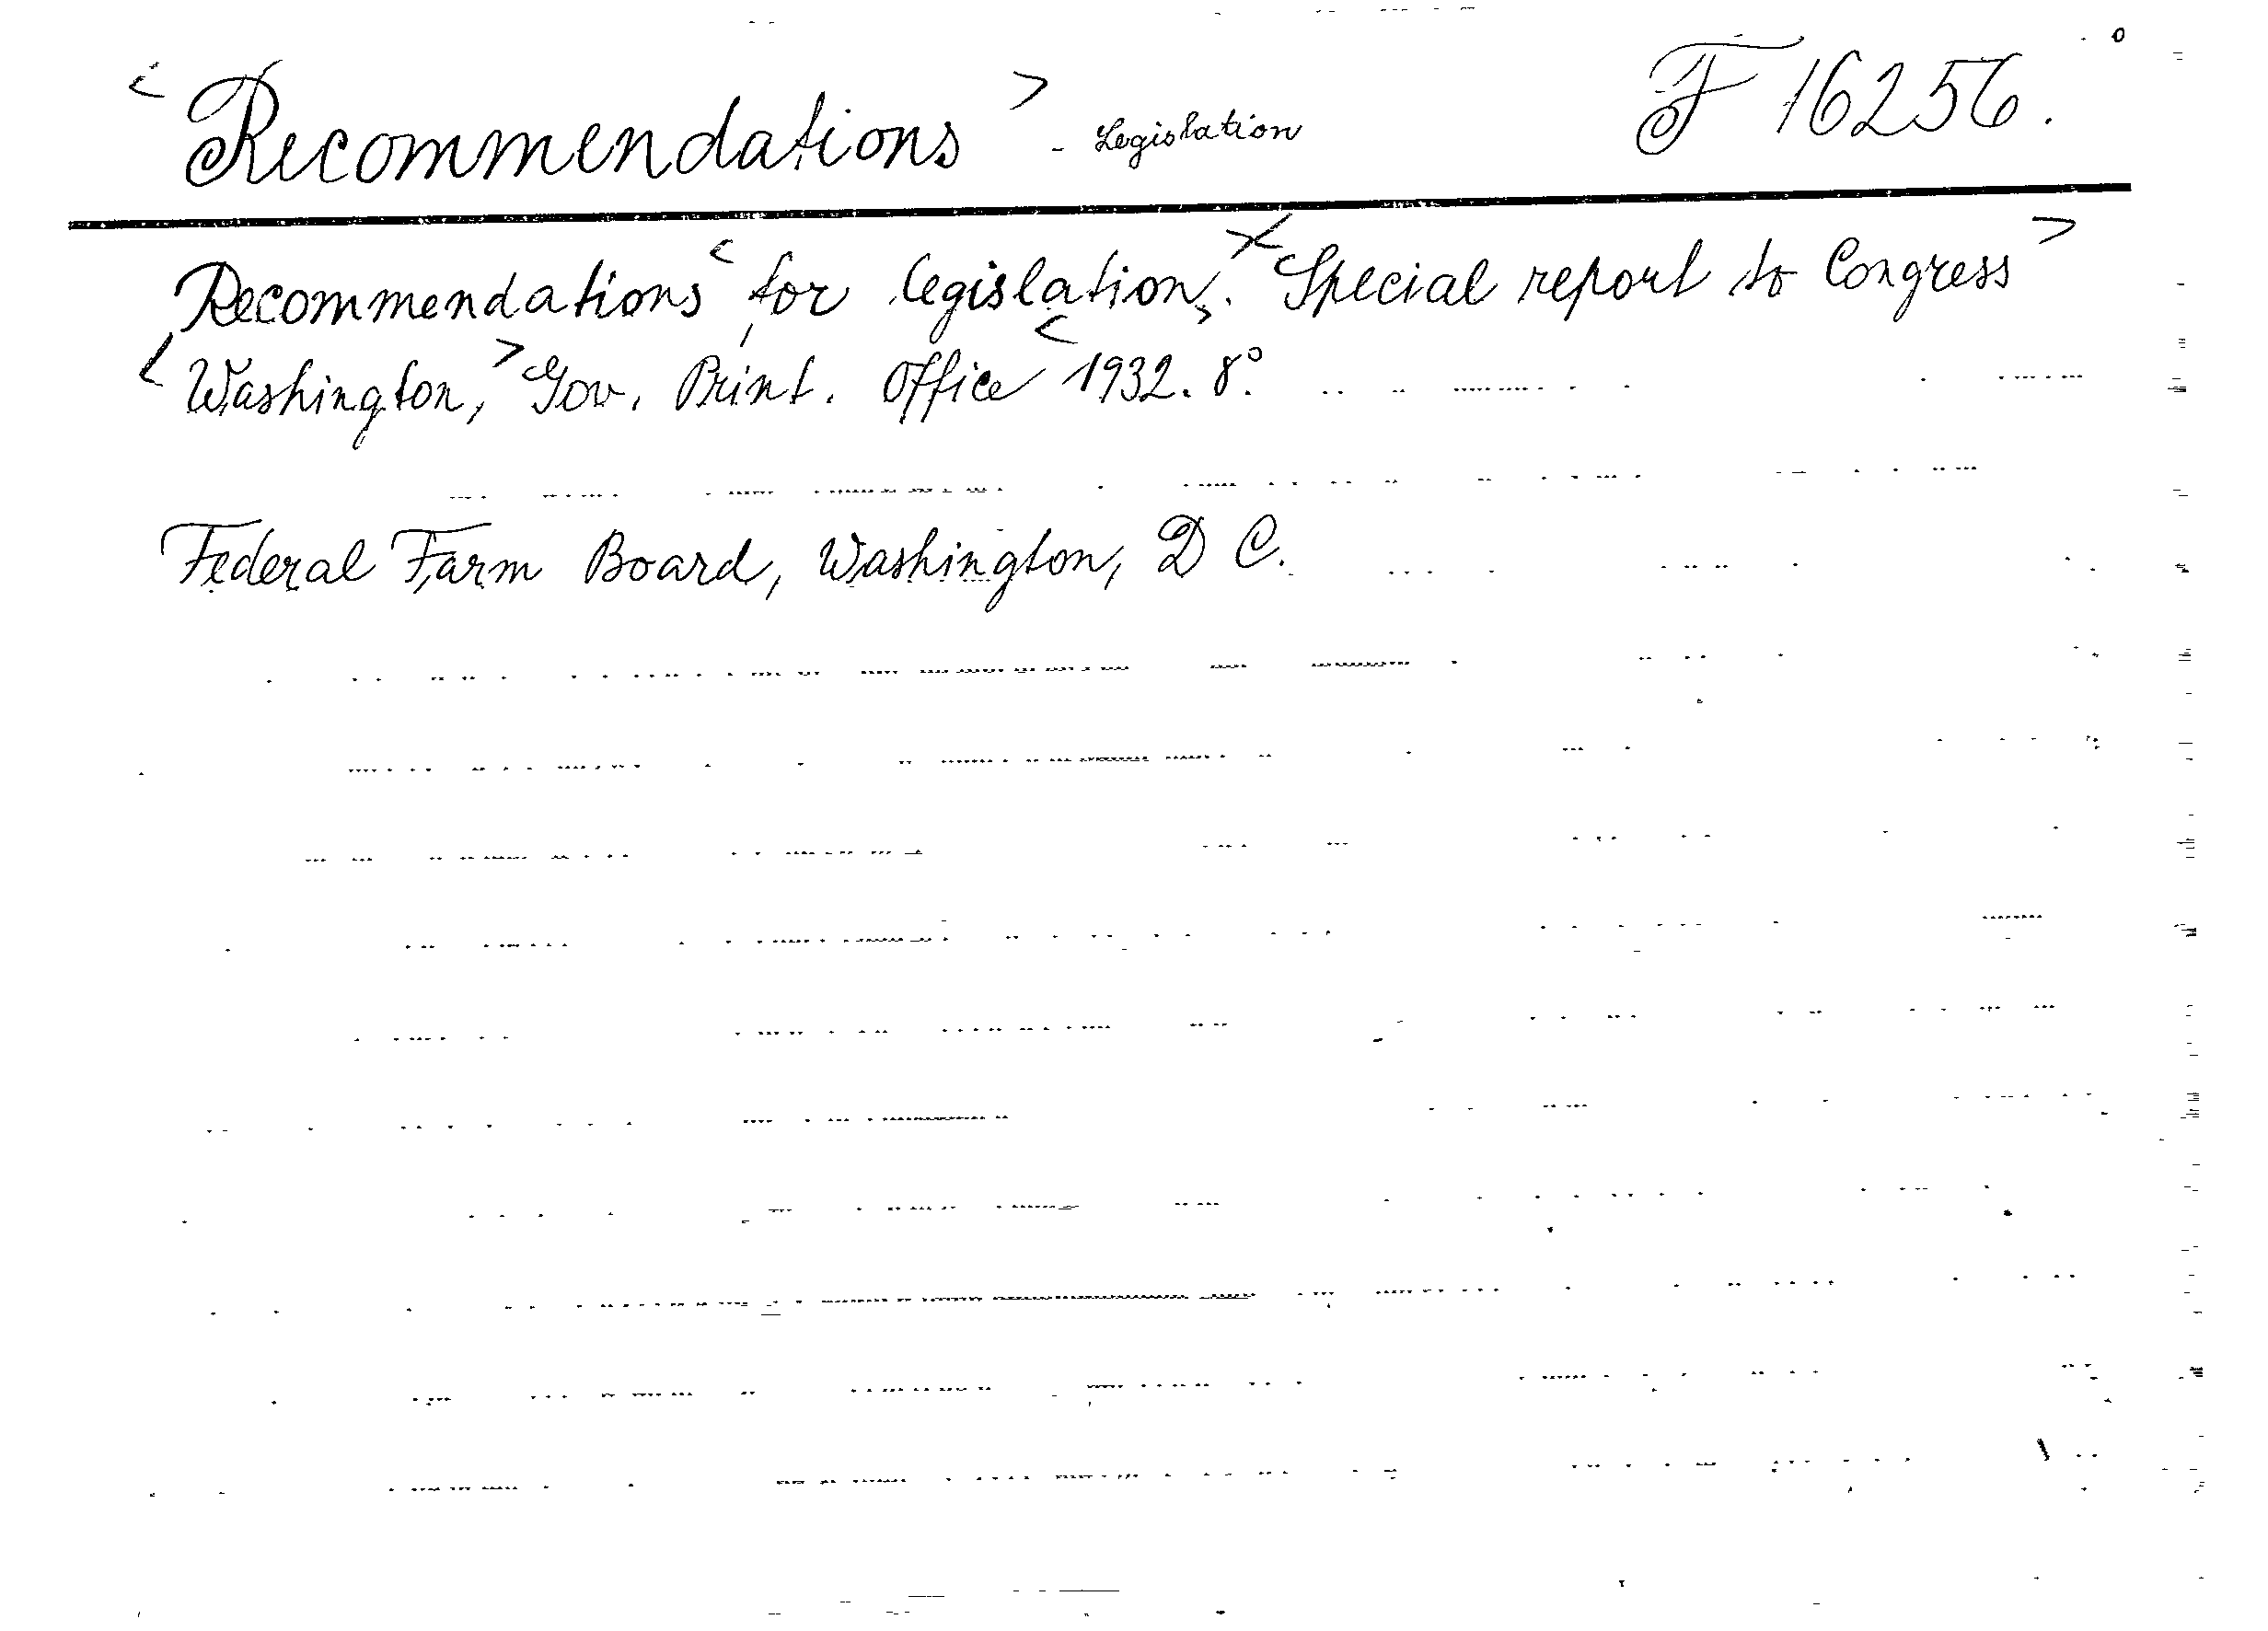 <Recommendations> - Legislation F 16256.
Recommendations < for legislation>. Special report to Congress>
<Washington,> Gov. Print. Office < 1932. 8°.
Federal Farm Board, Washington, D C.